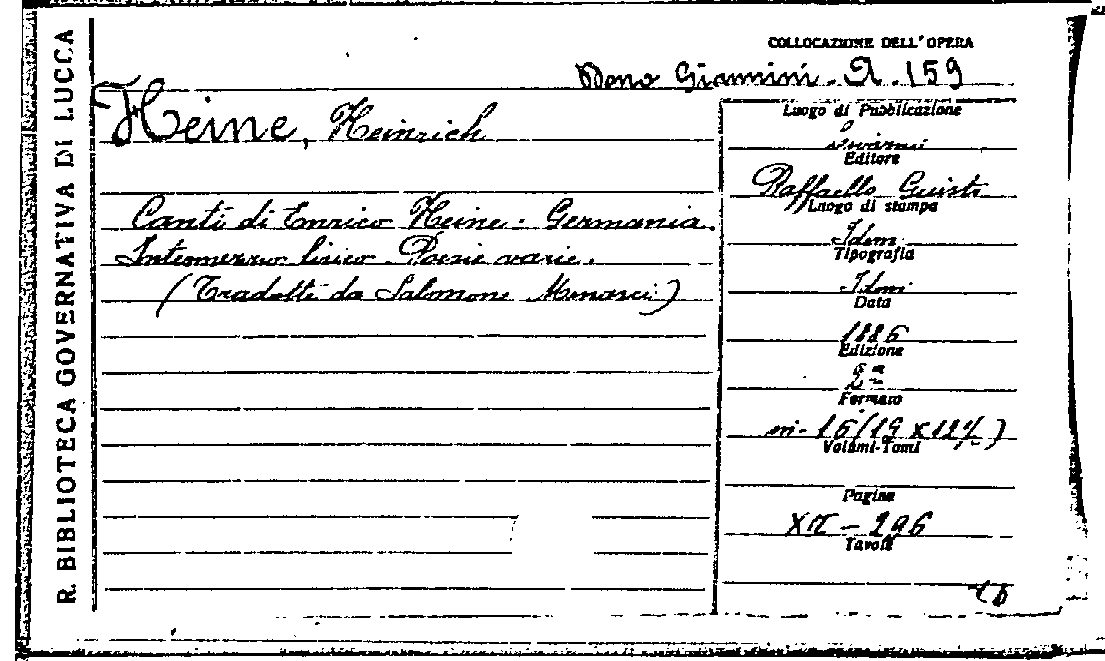 R. BIBLIOTECA GOVERNATIVA DI LUCCA
COLLOCAZIONE DELL' OPERA
Dono Giannini - A. 159
Heine, Heinrich
Canti di Enrico Heine - Germania.
Intermezzo lirico - Poesie varie.
(Tradotti da Salomone Menasci)
Luogo di Pubblicazione
Livorno
Editore
Raffaello Giusti
Luogo di stampa
Idem
Tipografia
Idem
Data
1886
Edizione
2ª
Formato
in-16 (19 x 12½)
Volumi-Tomi
Pagine
XII - 296
Tavole